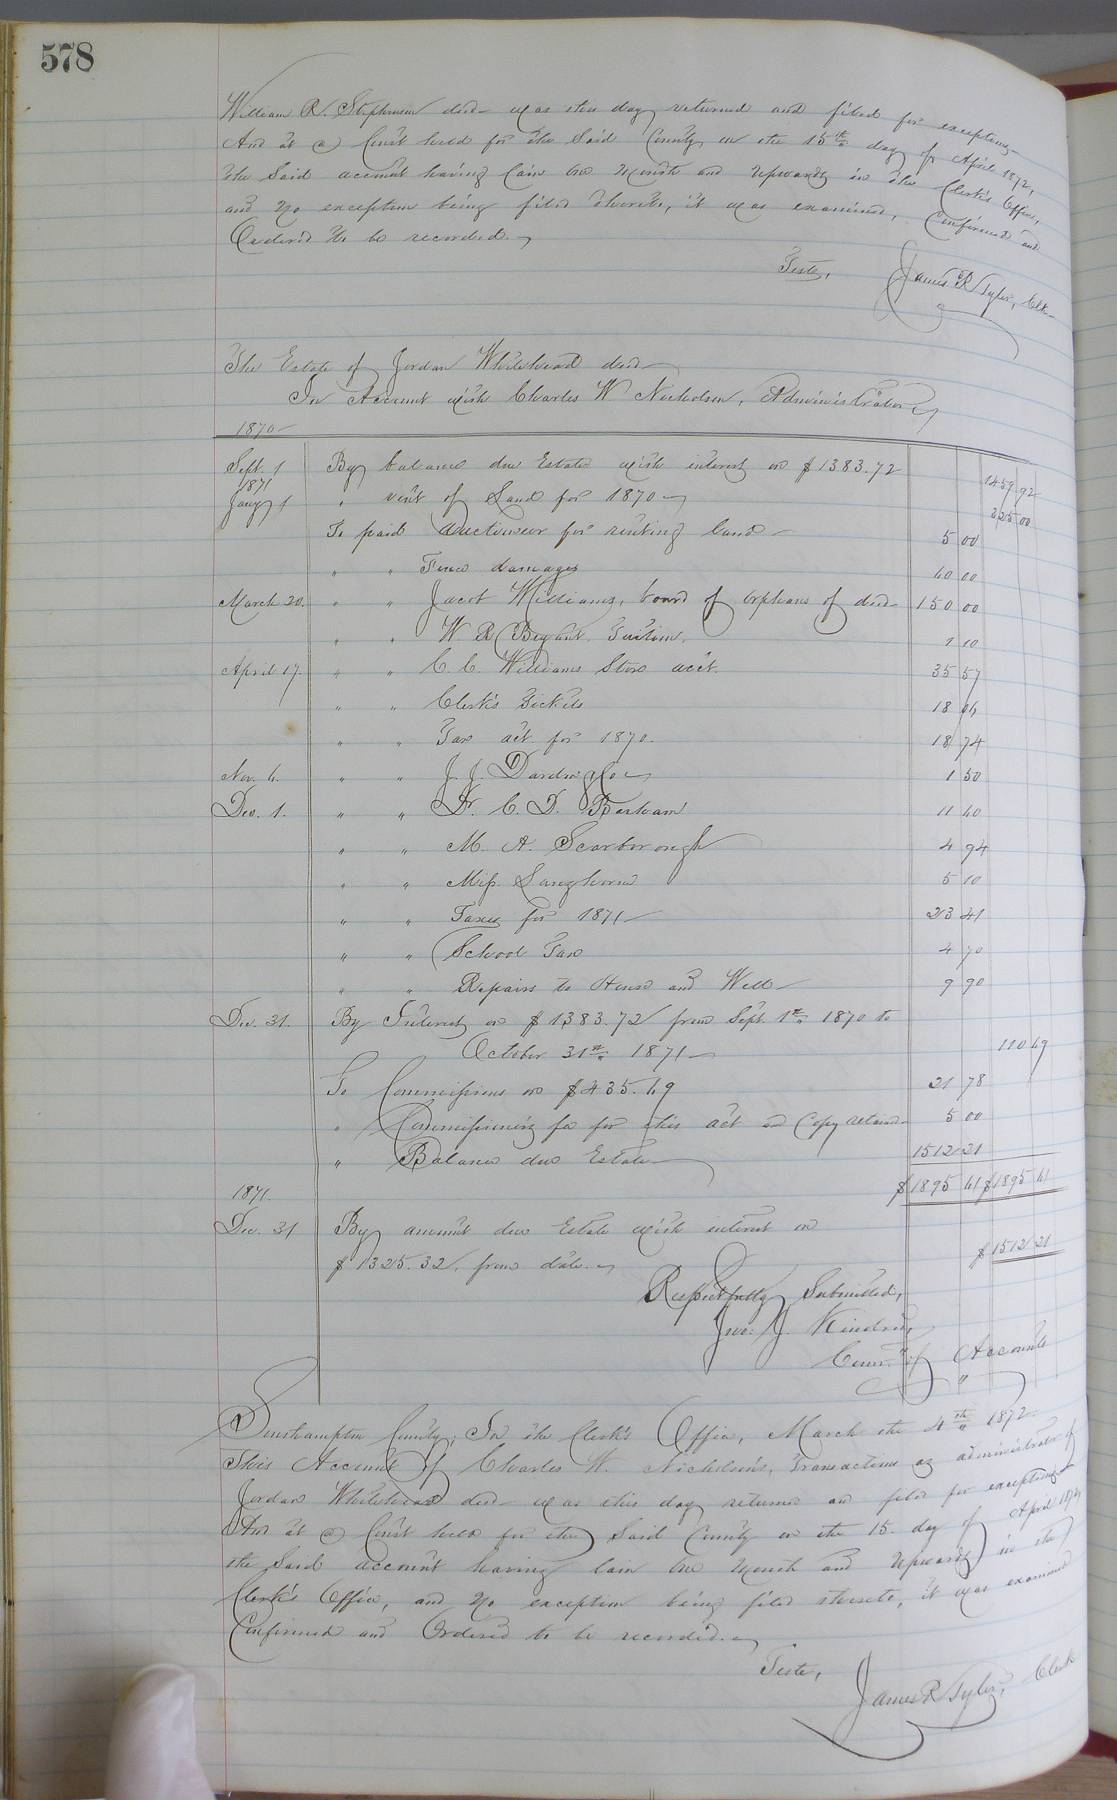 578
William R. Stephenson decd- was this day returned and filed for exceptions-
And at a Court held for the Said County on the 15th day of April 1872,
the Said account having lain one Month and Upwards in the Clerk's Office,
and No exception being filed thereto, it was examined, Confirmed and
Ordered to be recorded.
Teste, James R Tyler, Clk-
The Estate of Jordan Whitehead decd-
In Account with Charles W Nicholson, Administrator
1870-
Sept. 1 By balance due Estate with interest on $1383.72 1459 92
1871
Jany 1 " rent of Land for 1870- 325 00
To paid Auctioneer for renting land- 5 00
" " Fence damages 60 00
March 20. " " Jacob Williams, board of Orphans of decd- 150 00
" " W R Bryant Tuition. 7 10
April 17. " " C. C. Williams Store acct. 35 57
" " Clerk's Tickets 18 06
" " Tax act for 1870. 18 74
Nov. 6. " " J. J. Darden & Co 1 50
Dec. 1. " " Dr. C. D. Barham 11 60
" " M. A. Scarborough 4 94
" " Miss. Langhorne 5 10
" " Taxes for 1871- 23 41
" " School Tax 4 70
" " Repairs to House and Well- 9 90
Dec. 31. By Interest on $1383.72 from Sept. 1st 1870 to
October 31st 1871- 110 49
To Commissions on $435.49 21 78
" Commissioner's fee for this act and Copy retained 5 00
" Balance due Estate 1512 21
$1895 41 $1895 41
1871.
Dec. 31 By amount due Estate with interest on
$1325.32. from date. $1512 21
Respectfully Submitted,
Jno: J. Kindred,
Comr. of Accounts
Southampton County; In the Clerk's Office, March the 4th 1872-
This Account of Charles W. Nicholson's, Transactions as administrator of
Jordan Whitehead decd- was this day returned and filed for exceptions-
And at a Court held for the Said County on the 15. day of April 1872,
the Said account having lain one Month and Upwards in the
Clerk's Office, and No exception being filed thereto, it was examined
Confirmed and Ordered to be recorded.
Teste,
James R Tyler, Clerk